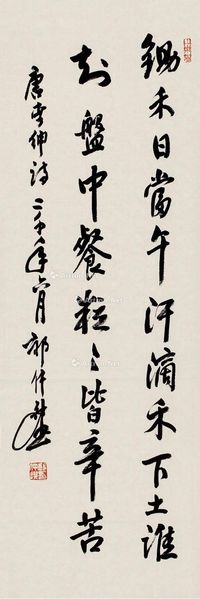 鋤禾日當午汗滴禾下土誰
知盤中餐粒〻皆辛苦
唐李紳詩二〇〇〇年六月郭仲